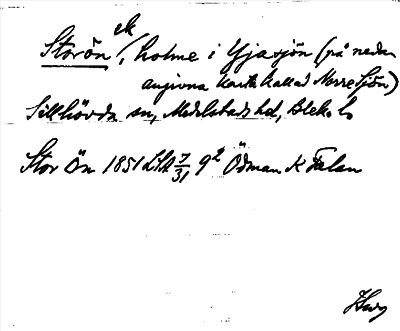 ek
Storön /, holme i Yjasjön (på nedan
angivna karta kallad Norre Sjön)
Sillhövda sn, Medelstads hd, Blek. l.
Stor Ön 1851 LSA 7/31 9² Ödman K Falan